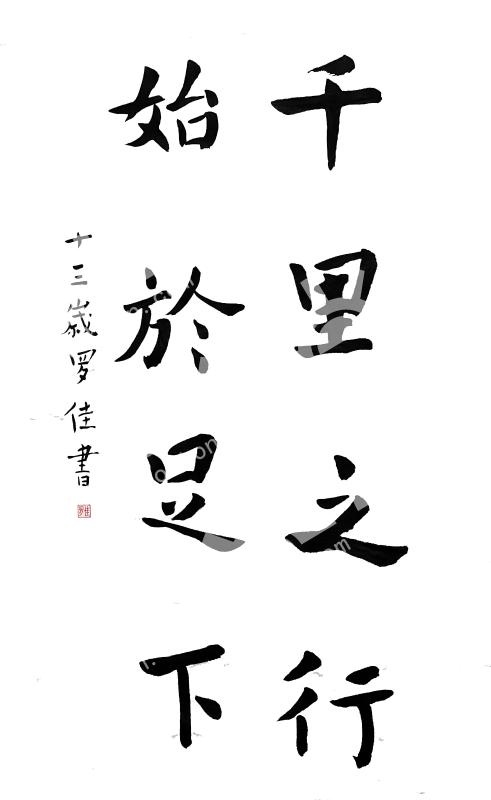 千里之行
始於足下
十三歲罗佳書